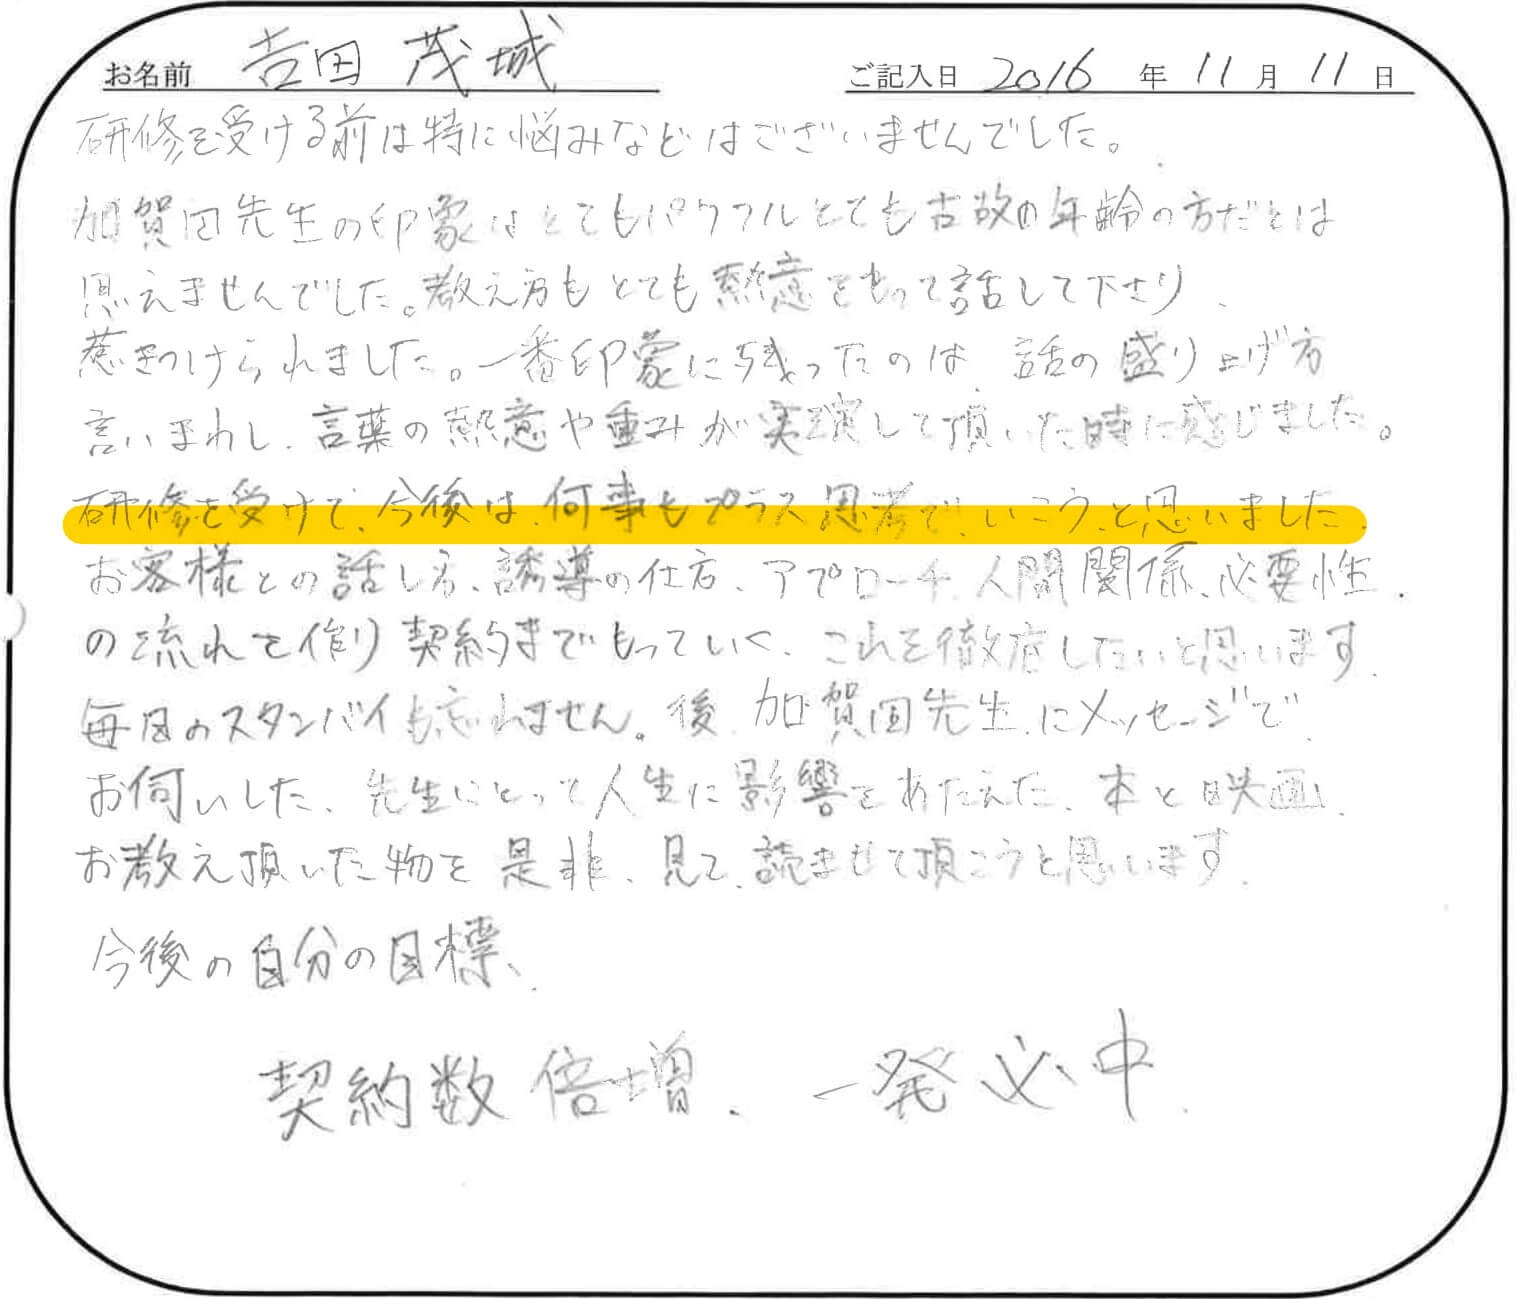 お名前 吉田 茂城 ご記入日 2016年11月11日
研修を受ける前は特に悩みなどはございませんでした。
加賀田先生の印象はとてもパワフルとても古敬の年齢の方だとは
思えませんでした。教え方もとても熱意をもって話して下さり、
惹きつけられました。一番印象に残ったのは、話の盛り上げ方
言いまわし、言葉の熱意や重みが実演して頂いた時に感じました。
研修を受けて、今後は、何事もプラス思考で、いこう、と思いました、
お客様との話し方、誘導の仕方、アプローチ、人間関係、必要性、
の流れを作り契約までもっていく、これを徹底したいと思います、
毎日のスタンバイも忘れません。後、加賀田先生にメッセージで、
お伺いした、先生にとって人生に影響をあたえた、本と映画、
お教え頂いた物を是非、見て、読ませて頂こうと思います、
今後の自分の目標、
契約数倍増、一発必中、